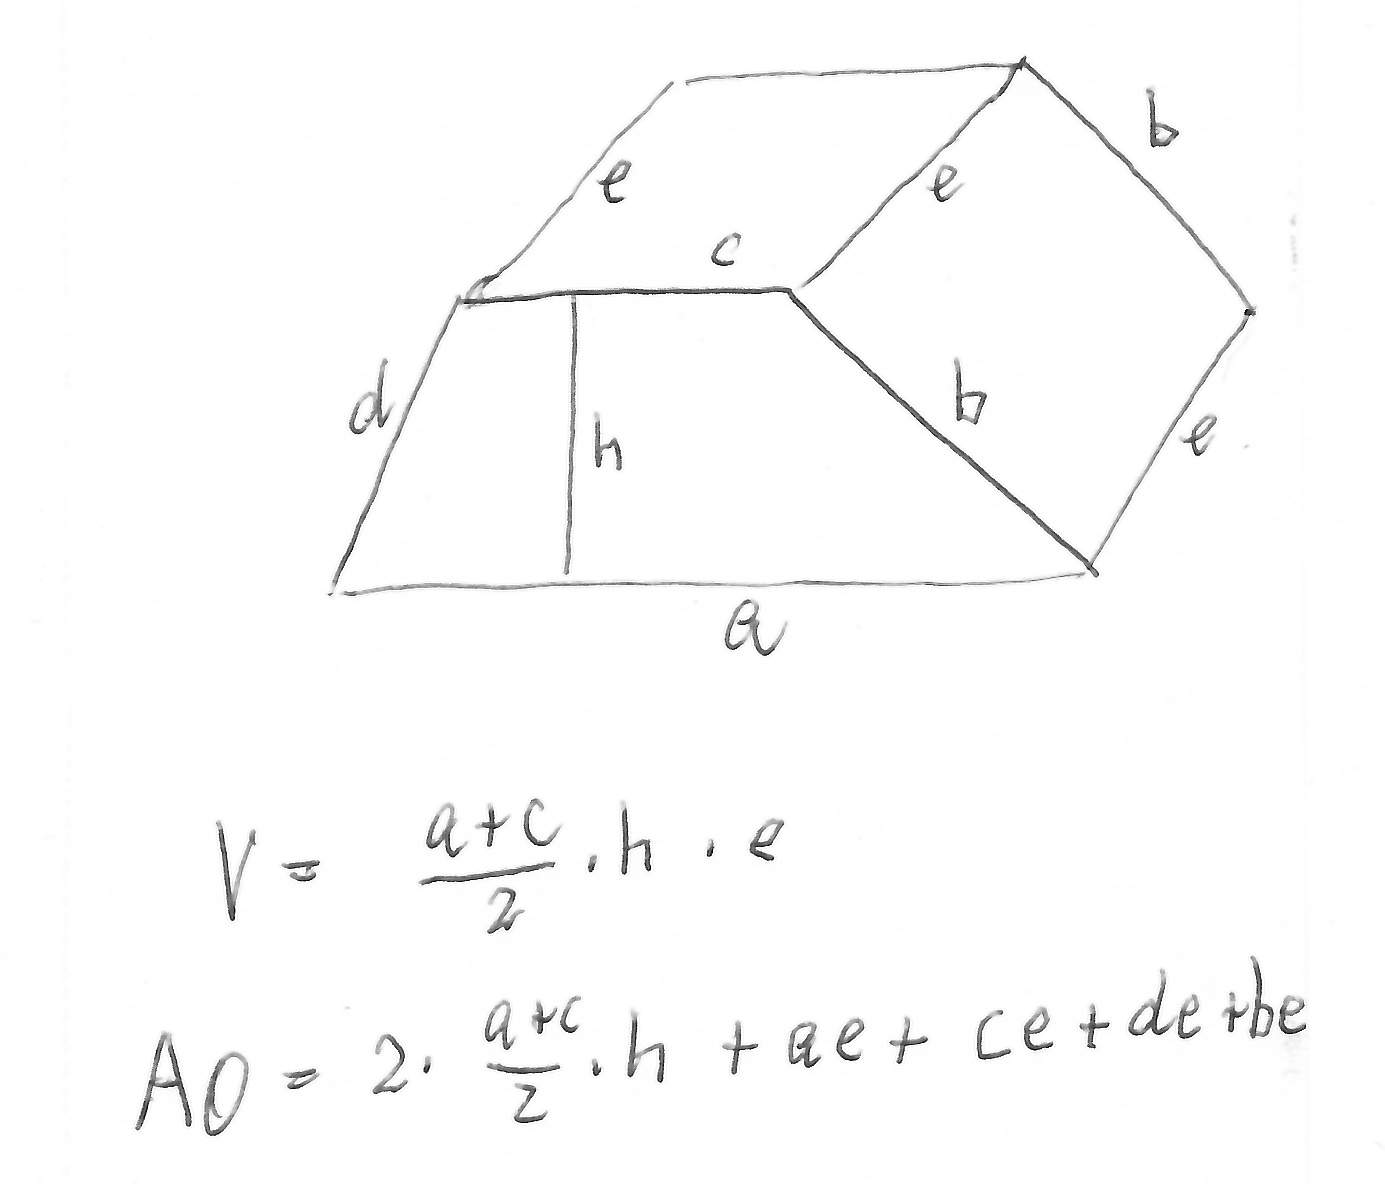 b
e
e
c
d
h
b
e
a
V = a+c/2 · h · e
AO = 2 · a+c/2 · h + ae + ce + de + be